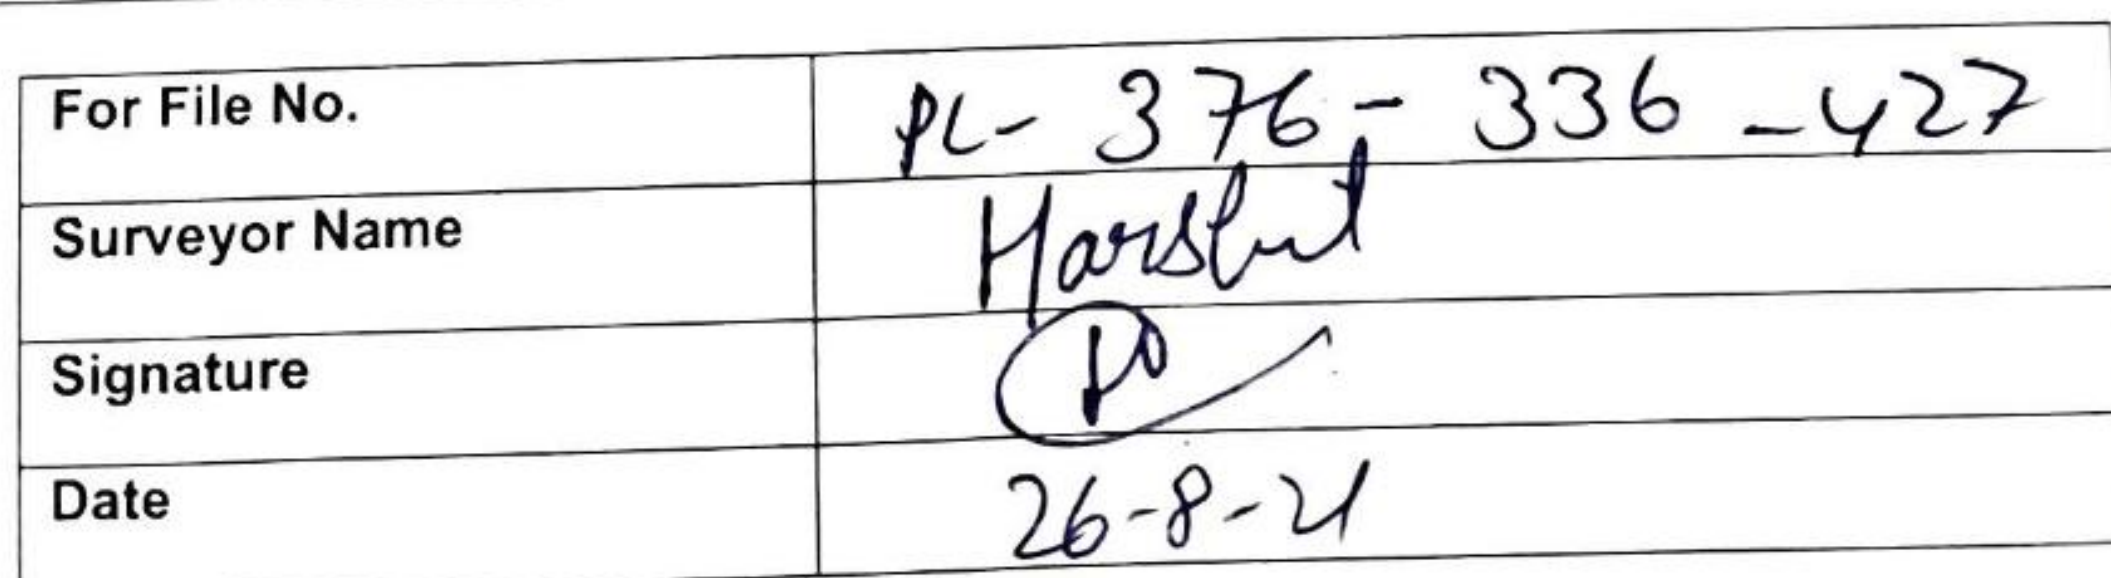 For File No. PL- 376- 336 -427
Surveyor Name Harshit
Signature
Date 26-8-21